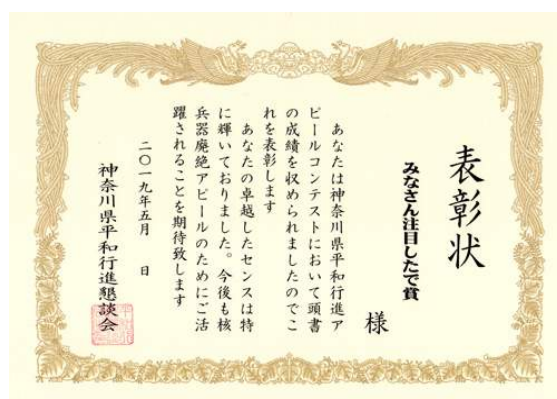 表彰状
みなさん注目したで賞
様
あなたは神奈川県平和行進ア
ピールコンテストにおいて頭書
の成績を収められましたのでこ
れを表彰します
あなたの卓越したセンスは特
に輝いておりました。今後も核
兵器廃絶アピールのためにご活
躍されることを期待致します
二〇一九年五月 日
神奈川県平和行進懇談会